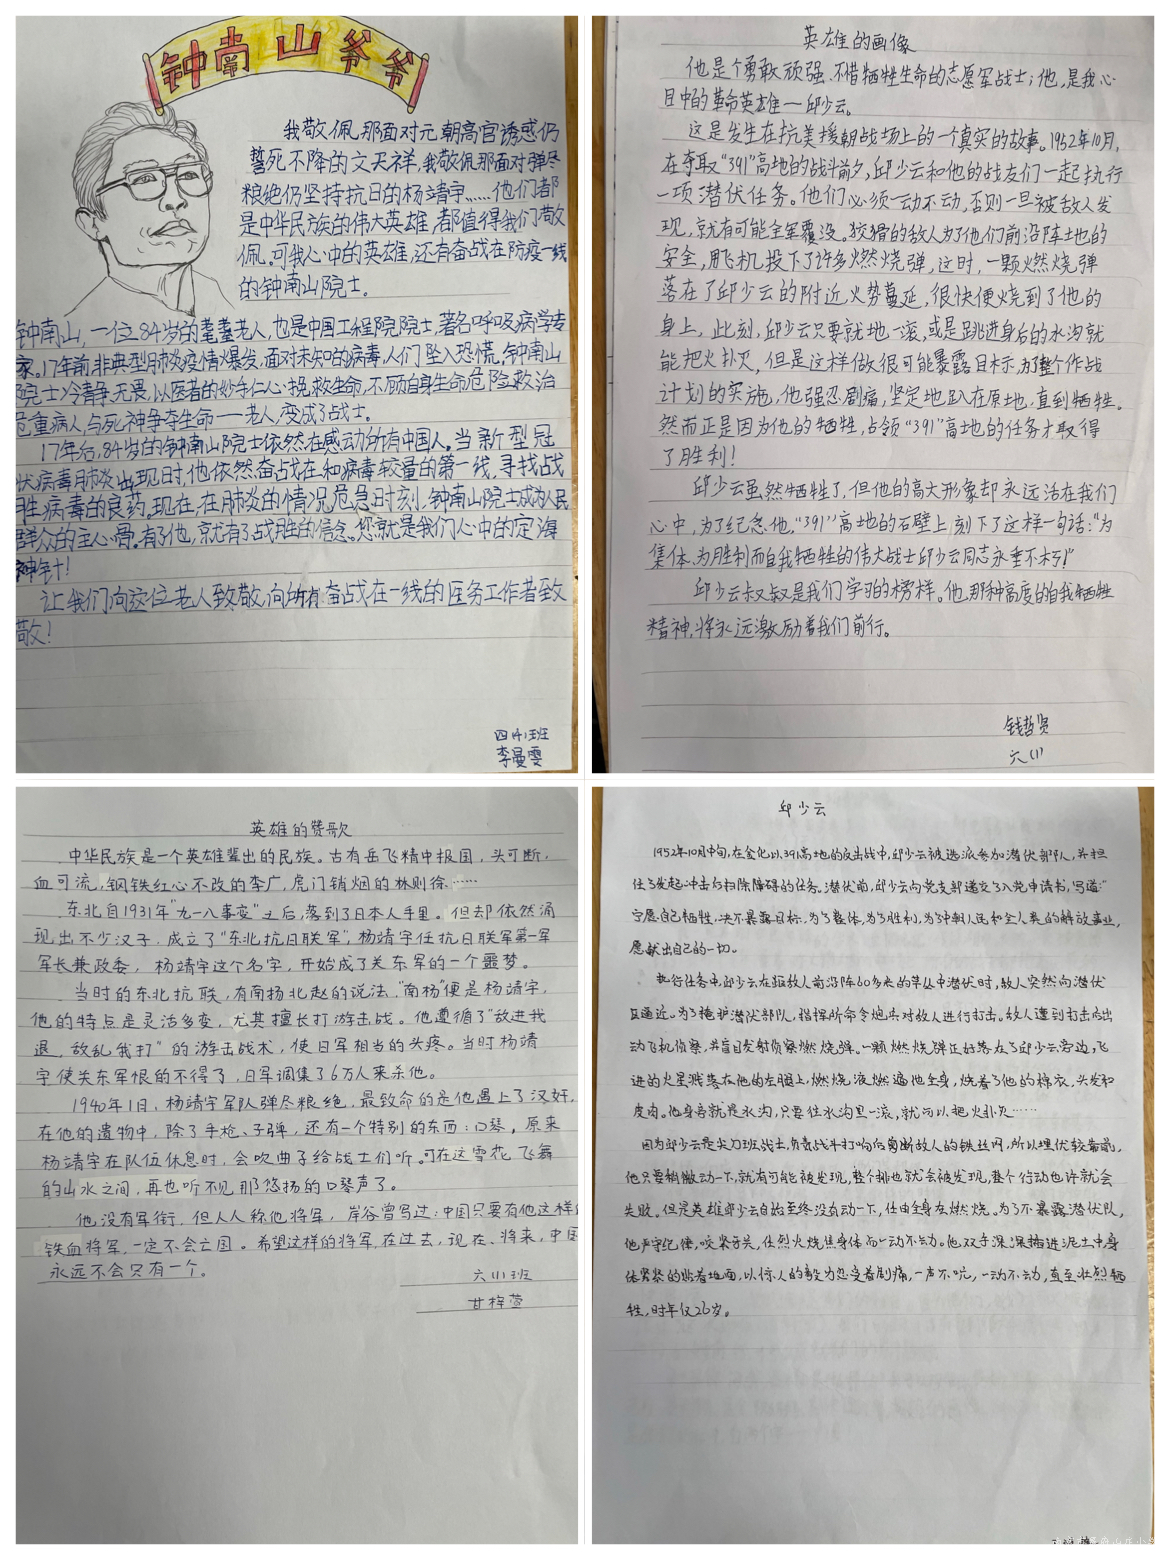 钟南山爷爷
我敬佩那面对元朝高官诱惑仍
誓死不降的文天祥,我敬佩那面对弹尽
粮绝仍坚持抗日的杨靖宇……他们都
是中华民族的伟大英雄,都值得我们敬
佩。可我心中的英雄,还有奋战在防疫一线
的钟南山院士。
钟南山,一位84岁的耄耋老人,也是中国工程院院士,著名呼吸病学专
家。17年前,非典型肺炎疫情爆发,面对未知的病毒,人们坠入恐慌,钟南山
院士冷静、无畏,以医者的妙手仁心挽救生命,不顾自身生命危险救治
危重病人,与死神争夺生命——老人变成了战士。
17年后,84岁的钟南山院士依然在感动所有中国人。当新型冠
状病毒肺炎出现时,他依然奋战在和病毒较量的第一线,寻找战
胜病毒的良药。现在,在肺炎的情况危急时刻,钟南山院士成为人民
群众的主心骨。有了他,就有了战胜的信念。您就是我们心中的定海
神针!
让我们向这位老人致敬,向所有奋战在一线的医务工作者致
敬!
四(4)班
李曼雯
英雄的画像
他是个勇敢顽强、不惜牺牲生命的志愿军战士;他,是我心
目中的革命英雄—邱少云。
这是发生在抗美援朝战场上的一个真实的故事。1952年10月,
在夺取“391”高地的战斗前夕,邱少云和他的战友们一起执行
一项潜伏任务。他们必须一动不动,否则一旦被敌人发
现,就有可能全军覆没。狡猾的敌人为了他们前沿阵地的
安全,用飞机投下了许多燃烧弹,这时,一颗燃烧弹
落在了邱少云的附近,火势蔓延,很快便烧到了他的
身上,此刻,邱少云只要就地一滚,或是跳进身后的水沟就
能把火扑灭,但是这样做很可能暴露目标,为了整个作战
计划的实施,他强忍剧痛,坚定地趴在原地,直到牺牲。
然而正是因为他的牺牲,占领“391”高地的任务才取得
了胜利!
邱少云虽然牺牲了,但他的高大形象却永远活在我们
心中,为了纪念他,“391”高地的石壁上刻下了这样一句话:“为
集体、为胜利而自我牺牲的伟大战士邱少云同志永垂不朽!”
邱少云叔叔是我们学习的榜样。他那种高度的自我牺牲
精神,将永远激励着我们前行。
钱哲贤
六(1)
英雄的赞歌
中华民族是一个英雄辈出的民族。古有岳飞精中报国,头可断,
血可流,钢铁红心不改的李广,虎门销烟的林则徐……
东北自1931年“九一八事变”之后,落到了日本人手里。但却依然涌
现出不少汉子,成立了“东北抗日联军”,杨靖宇任抗日联军第一军
军长兼政委,杨靖宇这个名字,开始成了关东军的一个噩梦。
当时的东北抗联,有南杨北赵的说法,“南杨”便是杨靖宇,
他的特点是灵活多变,尤其擅长打游击战。他遵循了“敌进我
退,敌乱我打”的游击战术,使日军相当的头疼。当时杨靖
宇使关东军恨的不得了,日军调集了6万人来杀他。
1940年1日,杨靖宇军队弹尽粮绝,最致命的是他遇上了汉奸,
在他的遗物中,除了手枪、子弹,还有一个特别的东西:口琴,原来
杨靖宇在队伍休息时,会吹曲子给战士们听。可在这雪花飞舞
的山水之间,再也听不见那悠扬的口琴声了。
他没有军衔,但人人称他将军,岸谷曾写过:中国只要有他这样的
铁血将军,一定不会亡国。希望这样的将军,在过去,现在、将来,中国
永远不会只有一个。
六(1)班
甘梓萱
邱少云
1952年10月中旬,在金化以391高地的反击战中,邱少云被选派参加潜伏部队,并担
任了发起冲击后扫除障碍的任务。潜伏前,邱少云向党支部递交了入党申请书,写道:“
宁愿自己牺牲,决不暴露目标,为了整体,为了胜利,为了中朝人民和全人类的解放事业,
愿献出自己的一切。
执行任务中,邱少云在距敌人前沿阵60多米的草丛中潜伏时,敌人突然向潜伏
区逼近。为了掩护潜伏部队,指挥所命令炮兵对敌人进行打击。敌人遭到打击后出
动飞机侦察,并盲目发射侦察燃烧弹。一颗燃烧弹正好落在了邱少云旁边,飞
迸的火星溅落在他的左腿上,燃烧液燃遍他全身,烧着了他的棉衣,头发和
皮肉。他身旁就是水沟,只要往水沟里一滚,就可以把火扑灭……
因为邱少云是尖刀班战士,负责战斗打响后剪断敌人的铁丝网,所以埋伏较靠前,
他只要稍微动一下,就有可能被发现,整个排也就会被发现,整个行动也许就会
失败。但是英雄邱少云自始至终没有动一下,任由全身在燃烧。为了不暴露潜伏队,
他严守纪律,咬紧牙关,任烈火烧焦身体而一动不动。他双手深深插进泥土中,身
体紧紧的贴着地面,以惊人的毅力忍受着剧痛,一声不吭,一动不动,直至壮烈牺
牲,时年仅26岁。